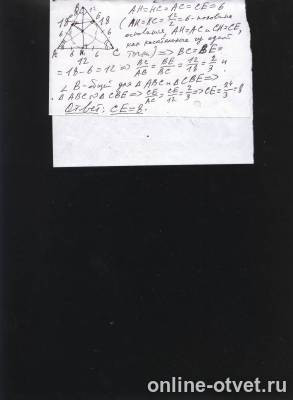 18 12 18
6 6
A 6 H 6 C
12
AH=HC=AC=CE=6
(AH=HC=12/2=6-половине
основания, AH=AC и CH=CE,
как касательные из одной
точки) => BC=BE=
=18-6=12 => BC/AB=BE/BC=12/18=2/3 и
∠B-общий для ΔABC и ΔCBE=>
ΔABC∾ΔCBE=>CE/AC=CE/12=2/3=>CE=24/3=8
Ответ: CE=8.
online-otvet.ru